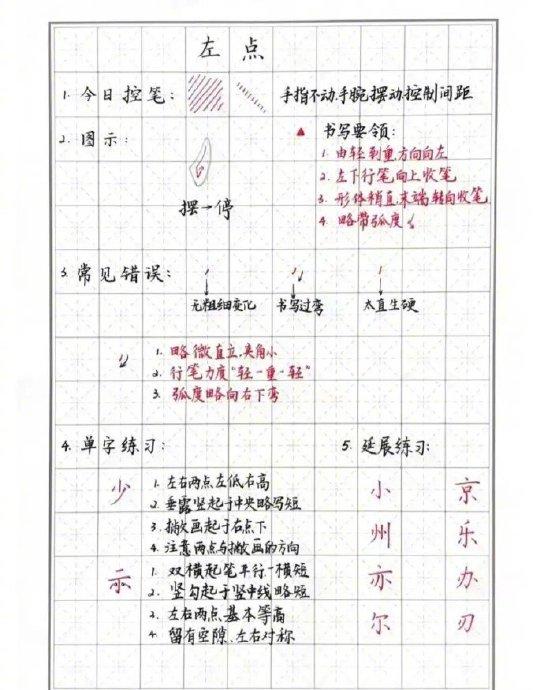 左点
1. 今日控笔: 手指不动.手腕摆动.控制间距
2. 图示:
摆→停
▲ 书写要领:
1. 由轻到重.方向向左
2. 左下行笔向上收笔
3. 形体稍直末端转向收笔
4. 略带弧度
3. 常见错误:
无粗细变化 书写过弯 太直生硬
1. 略微直立.夹角小
2. 行笔力度"轻-重-轻"
3. 弧度略向右下弯
4. 单字练习:
少
1. 左右两点左低右高
2. 垂露竖起于中央略写短
3. 撇画起于右点下
4. 注意两点与撇画的方向
示
1. 双横起笔平行一横短
2. 竖勾起于竖中线略短
3. 左右两点基本等高
4. 留有空隙.左右对称
5. 延展练习:
小 京
州 乐
亦 办
尔 刃